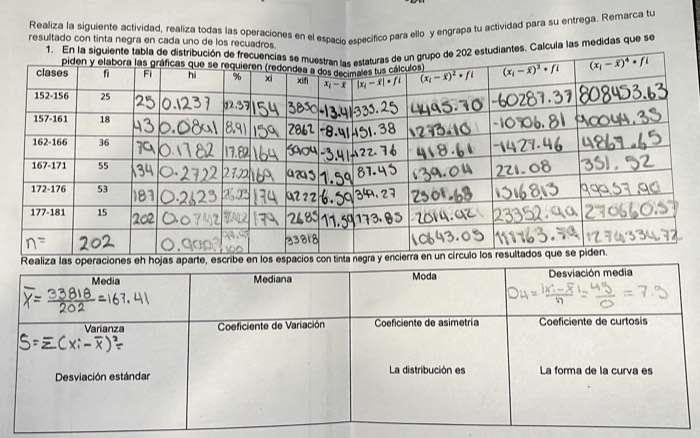 Realiza la siguiente actividad, realiza todas las operaciones en el espacio especifico para ello y engrapa tu actividad para su entrega. Remarca tu
resultado con tinta negra en cada uno de los recuadros.
1. En la siguiente tabla de distribución de frecuencias se muestran las estaturas de un grupo de 202 estudiantes. Calcula las medidas que se
piden y elabora las gráficas que se requieren (redondea a dos decimales tus cálculos)
clases fi Fi hi % xi xifi xᵢ − x̄ |xᵢ − x̄| • fi (xᵢ − x̄)² • fi (xᵢ − x̄)³ • fi (xᵢ − x̄)⁴ • fi
152-156 25 25 0.1237 12.37 154 3850 -13.41 335.25 4495.70 -60287.37 808453.63
157-161 18 43 0.0891 8.91 159 2862 -8.41 151.38 1273.10 -10706.81 90044.35
162-166 36 79 0.1782 17.82 164 5904 -3.41 122.76 418.61 -1427.46 4867.65
167-171 55 134 0.2722 27.22 169 9295 1.59 87.45 139.04 221.08 351.52
172-176 53 187 0.2623 26.23 174 9222 6.59 349.27 2301.68 15168.13 99957.99
177-181 15 202 0.0742 179 2685 11.59 173.85 2014.92 23352.99 270660.57
n= 202 33818 10643.05 1274334.72
Realiza las operaciones eh hojas aparte, escribe en los espacios con tinta negra y encierra en un circulo los resultados que se piden.
Media Mediana Moda Desviación media
x̄ = 33818/202 = 167.41 = 7.9
Varianza Coeficiente de Variación Coeficiente de asimetría Coeficiente de curtosis
S = Σ(xi - x̄)²
Desviación estándar La distribución es La forma de la curva es